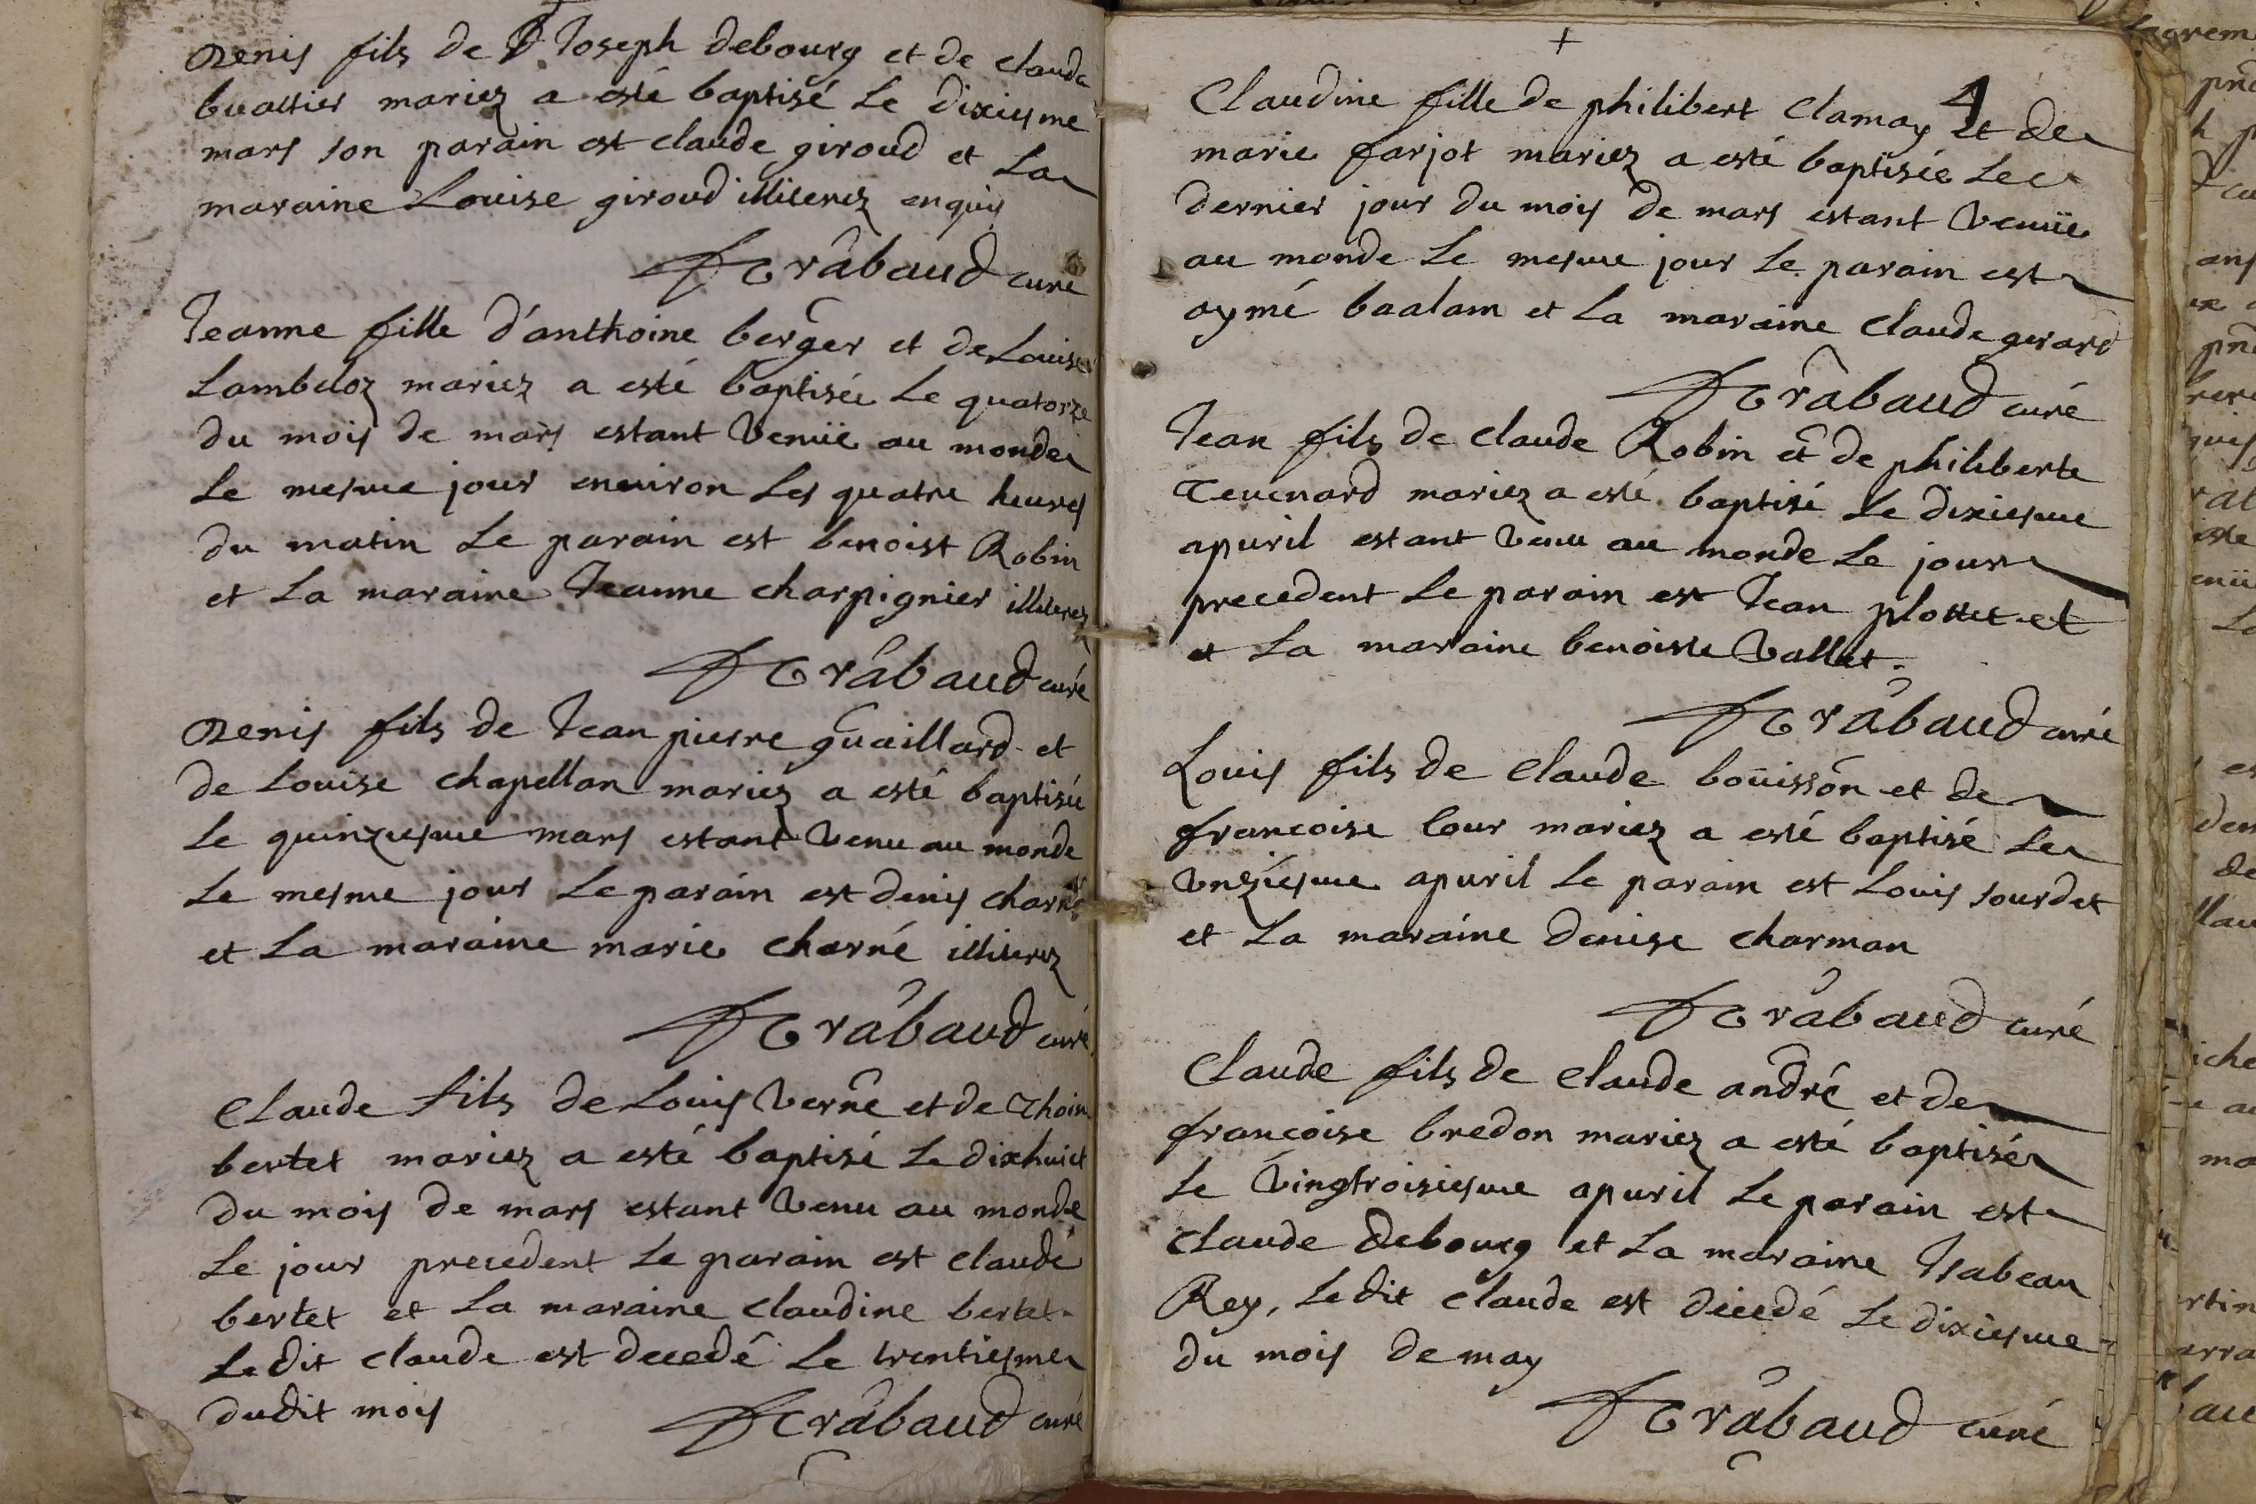 Denis fils de Joseph debourg et de claude
buattier mariez a esté baptisé Le dixiesme
mars son parain est claude giroud et La
maraine Louise giroud illiterez enquis
Trabaud curé
Jeanne fille d'anthoine berger et de Louise
Lambeloz mariez a esté baptisée Le quatorze
du mois de mars estant Venüe au monde
Le mesme jour enuiron Les quatre heures
du matin Le parain est benoist Robin
et La maraine Jeanne charpignier illiterez
Trabaud curé
Denis fils de Jean pierre guaillard et
de Louise chapellan mariez a esté baptisé
Le quinziesme mars estant Venu au monde
Le mesme jour Le parain est denis charné
et La maraine marie charné illiterez
Trabaud curé
Claude fils de Louis Verne et de Thoin
bertet mariez a esté baptisé Le dixhuict
du mois de mars estant Venu au monde
Le jour precedent Le parain est claude
bertet et La maraine claudine bertet
Le dit claude est decedé Le trentiesme
dudit mois
Trabaud curé
4
Claudine fille de philibert Clamay et de
marie farjot mariez a esté baptisée Le
dernier jour du mois de mars estant Venüe
au monde Le mesme jour Le parain est
aymé baalam et La maraine Claude gerard
Trabaud curé
Jean fils de claude Robin et de philiberte
Teuenard mariez a esté baptisé Le dixiesme
apuril estant Venu au monde Le jour
precedent Le parain est Jean plottet et
et La maraine benoiste Vallet.
Trabaud curé
Louis fils de Claude boüisson et de
francoise Cour mariez a esté baptisé Le
Vnziesme apuril Le parain est Louis sourdet
et La maraine denise charman
Trabaud curé
Claude fils de claude andré et de
francoise bredon mariez a esté baptisé
Le Vingtroisiesme apuril Le parain est
Claude debourg et La maraine Isabeau
Rey, Ledit Claude est decedé Le dixiesme
du mois de may
Trabaud curé